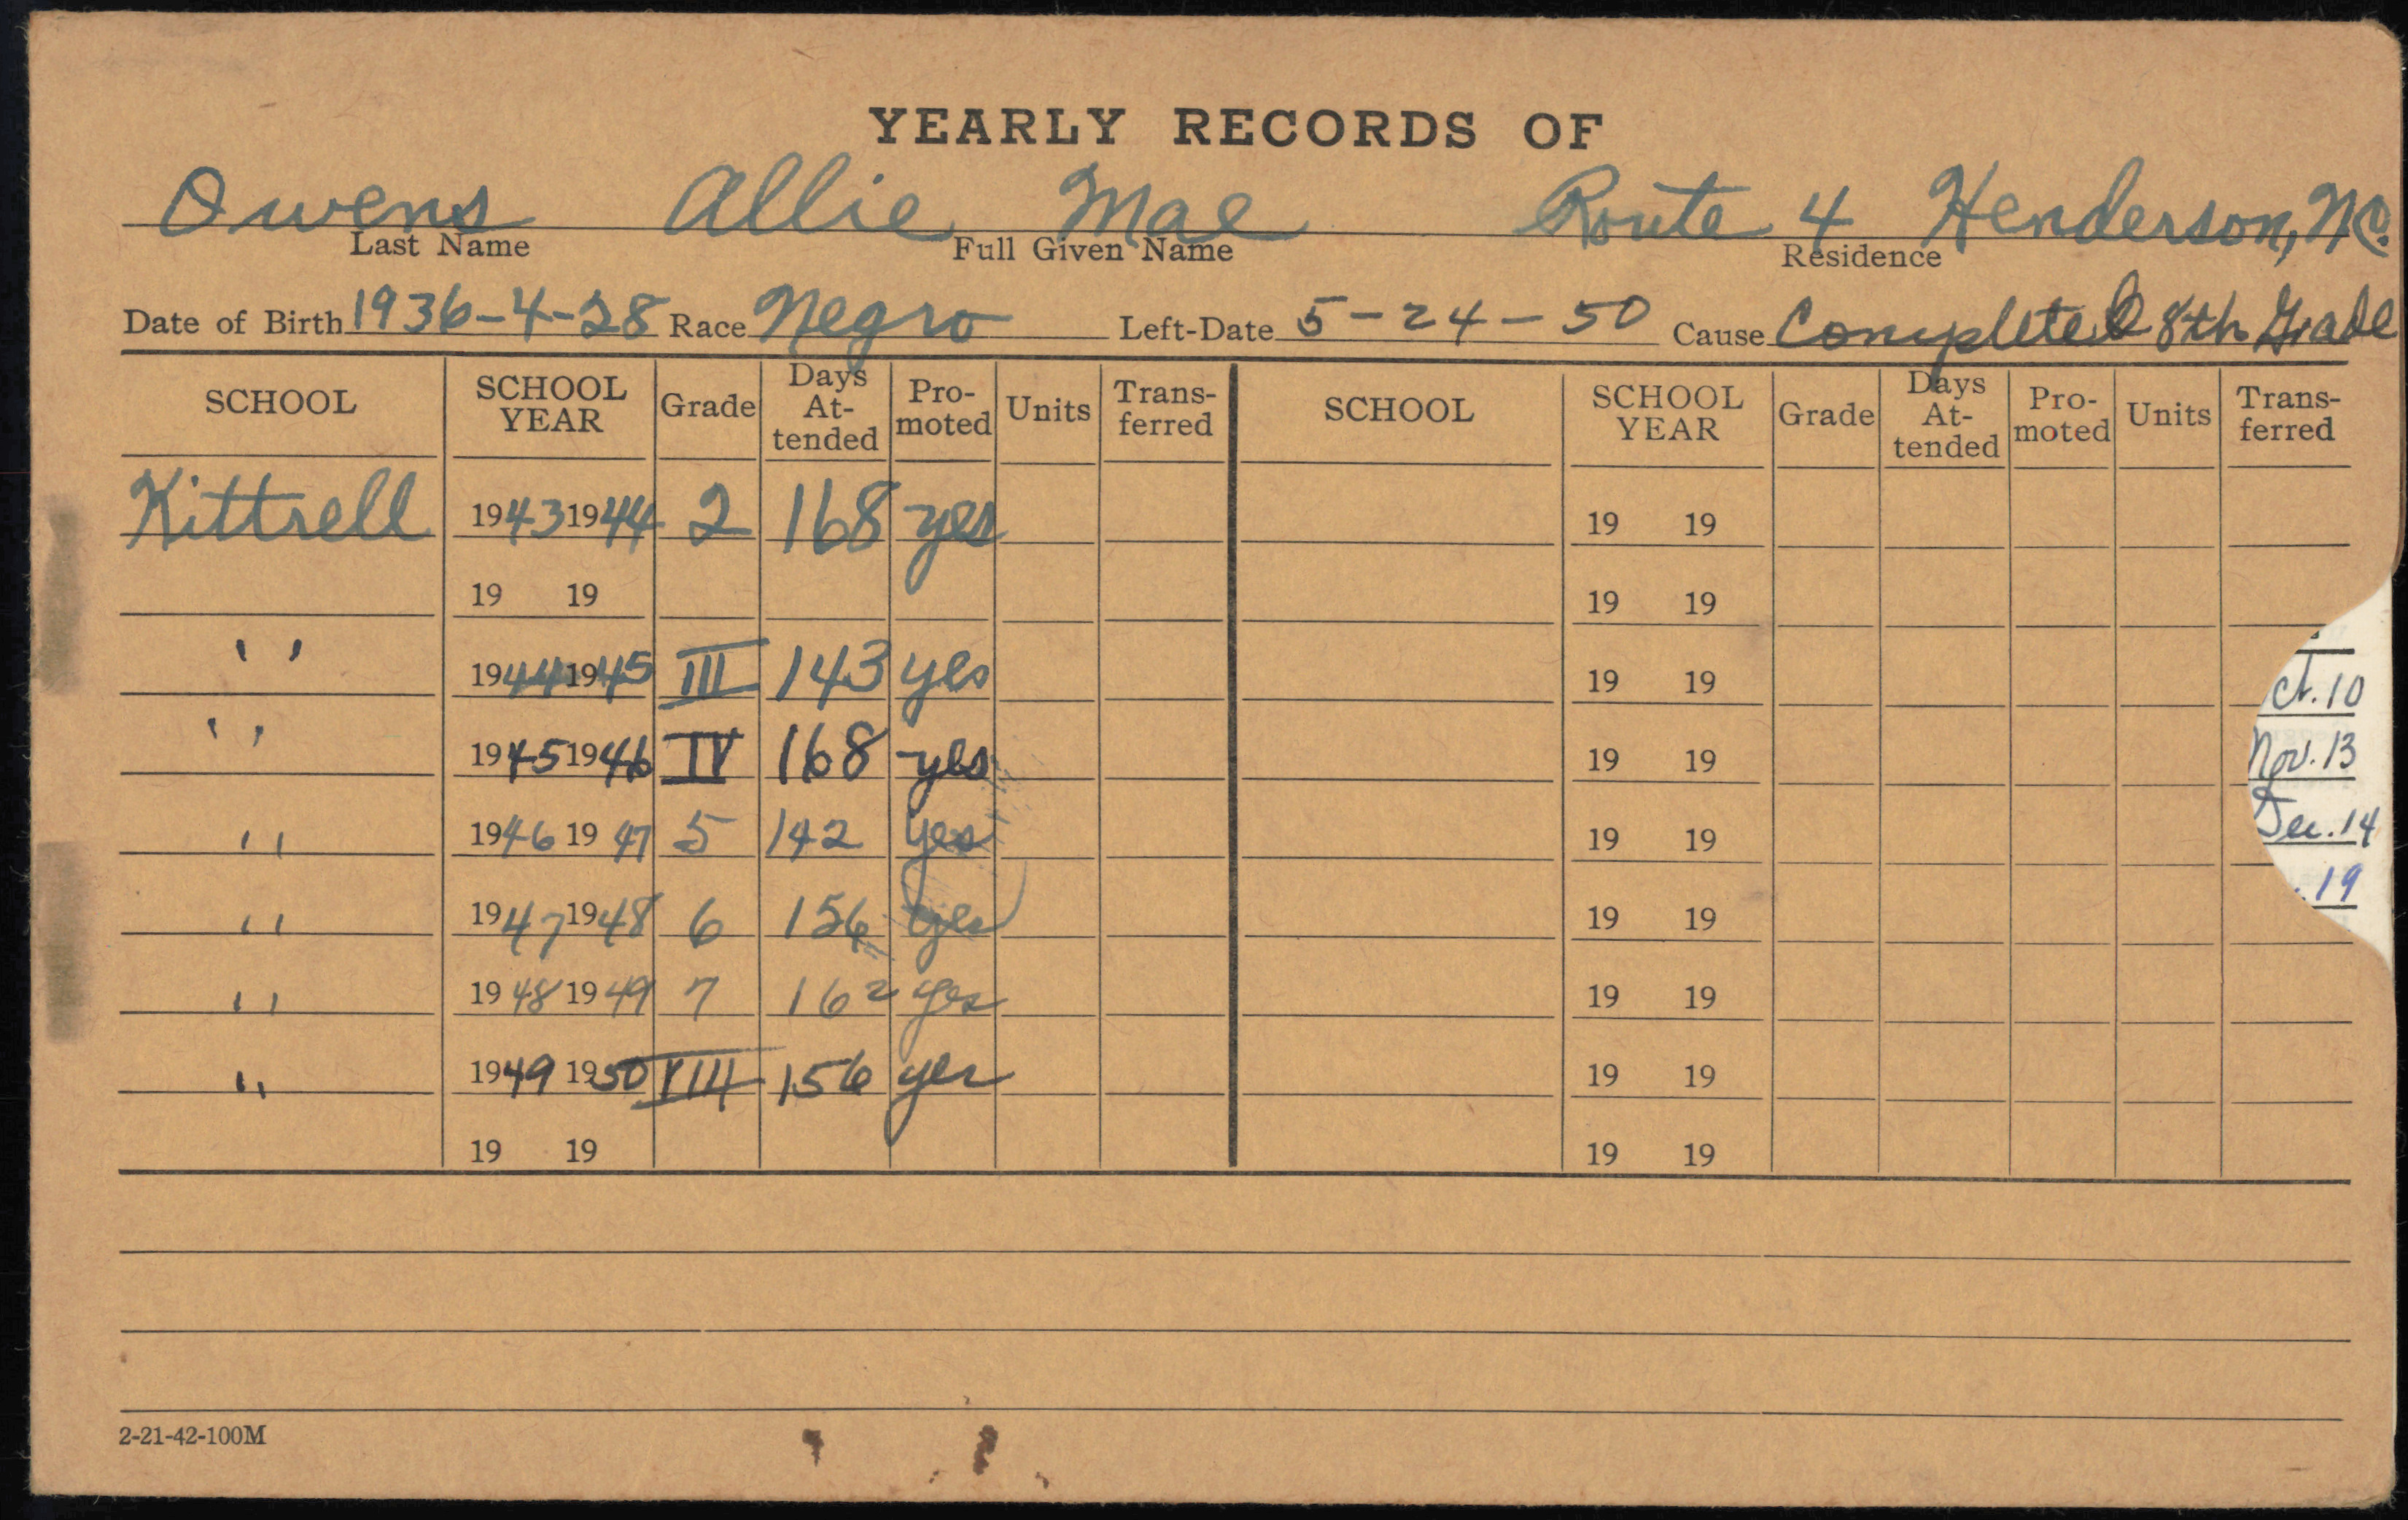 YEARLY RECORDS OF
Owens Allie Mae Route 4 Henderson, N.C.
Last Name Full Given Name Residence
Date of Birth 1936-4-28 Race Negro Left-Date 5-24-50 Cause Completed 8th Grade
SCHOOL SCHOOL YEAR Grade Days At-tended Pro-moted Units Trans-ferred SCHOOL SCHOOL YEAR Grade Days At-tended Pro-moted Units Trans-ferred
Kittrell 1943 1944 2 168 yes 19 19
19 19 19 19
" 1944 1945 III 143 yes 19 19
ct. 10
" 1945 1946 IV 168 yes 19 19
Nov. 13
" 1946 19 47 5 142 yes 19 19
Dec. 14
" 1947 1948 6 156 yes 19 19
. 19
" 1948 1949 7 162 yes 19 19
" 1949 1950 VIII 156 yes 19 19
19 19 19 19
2-21-42-100M